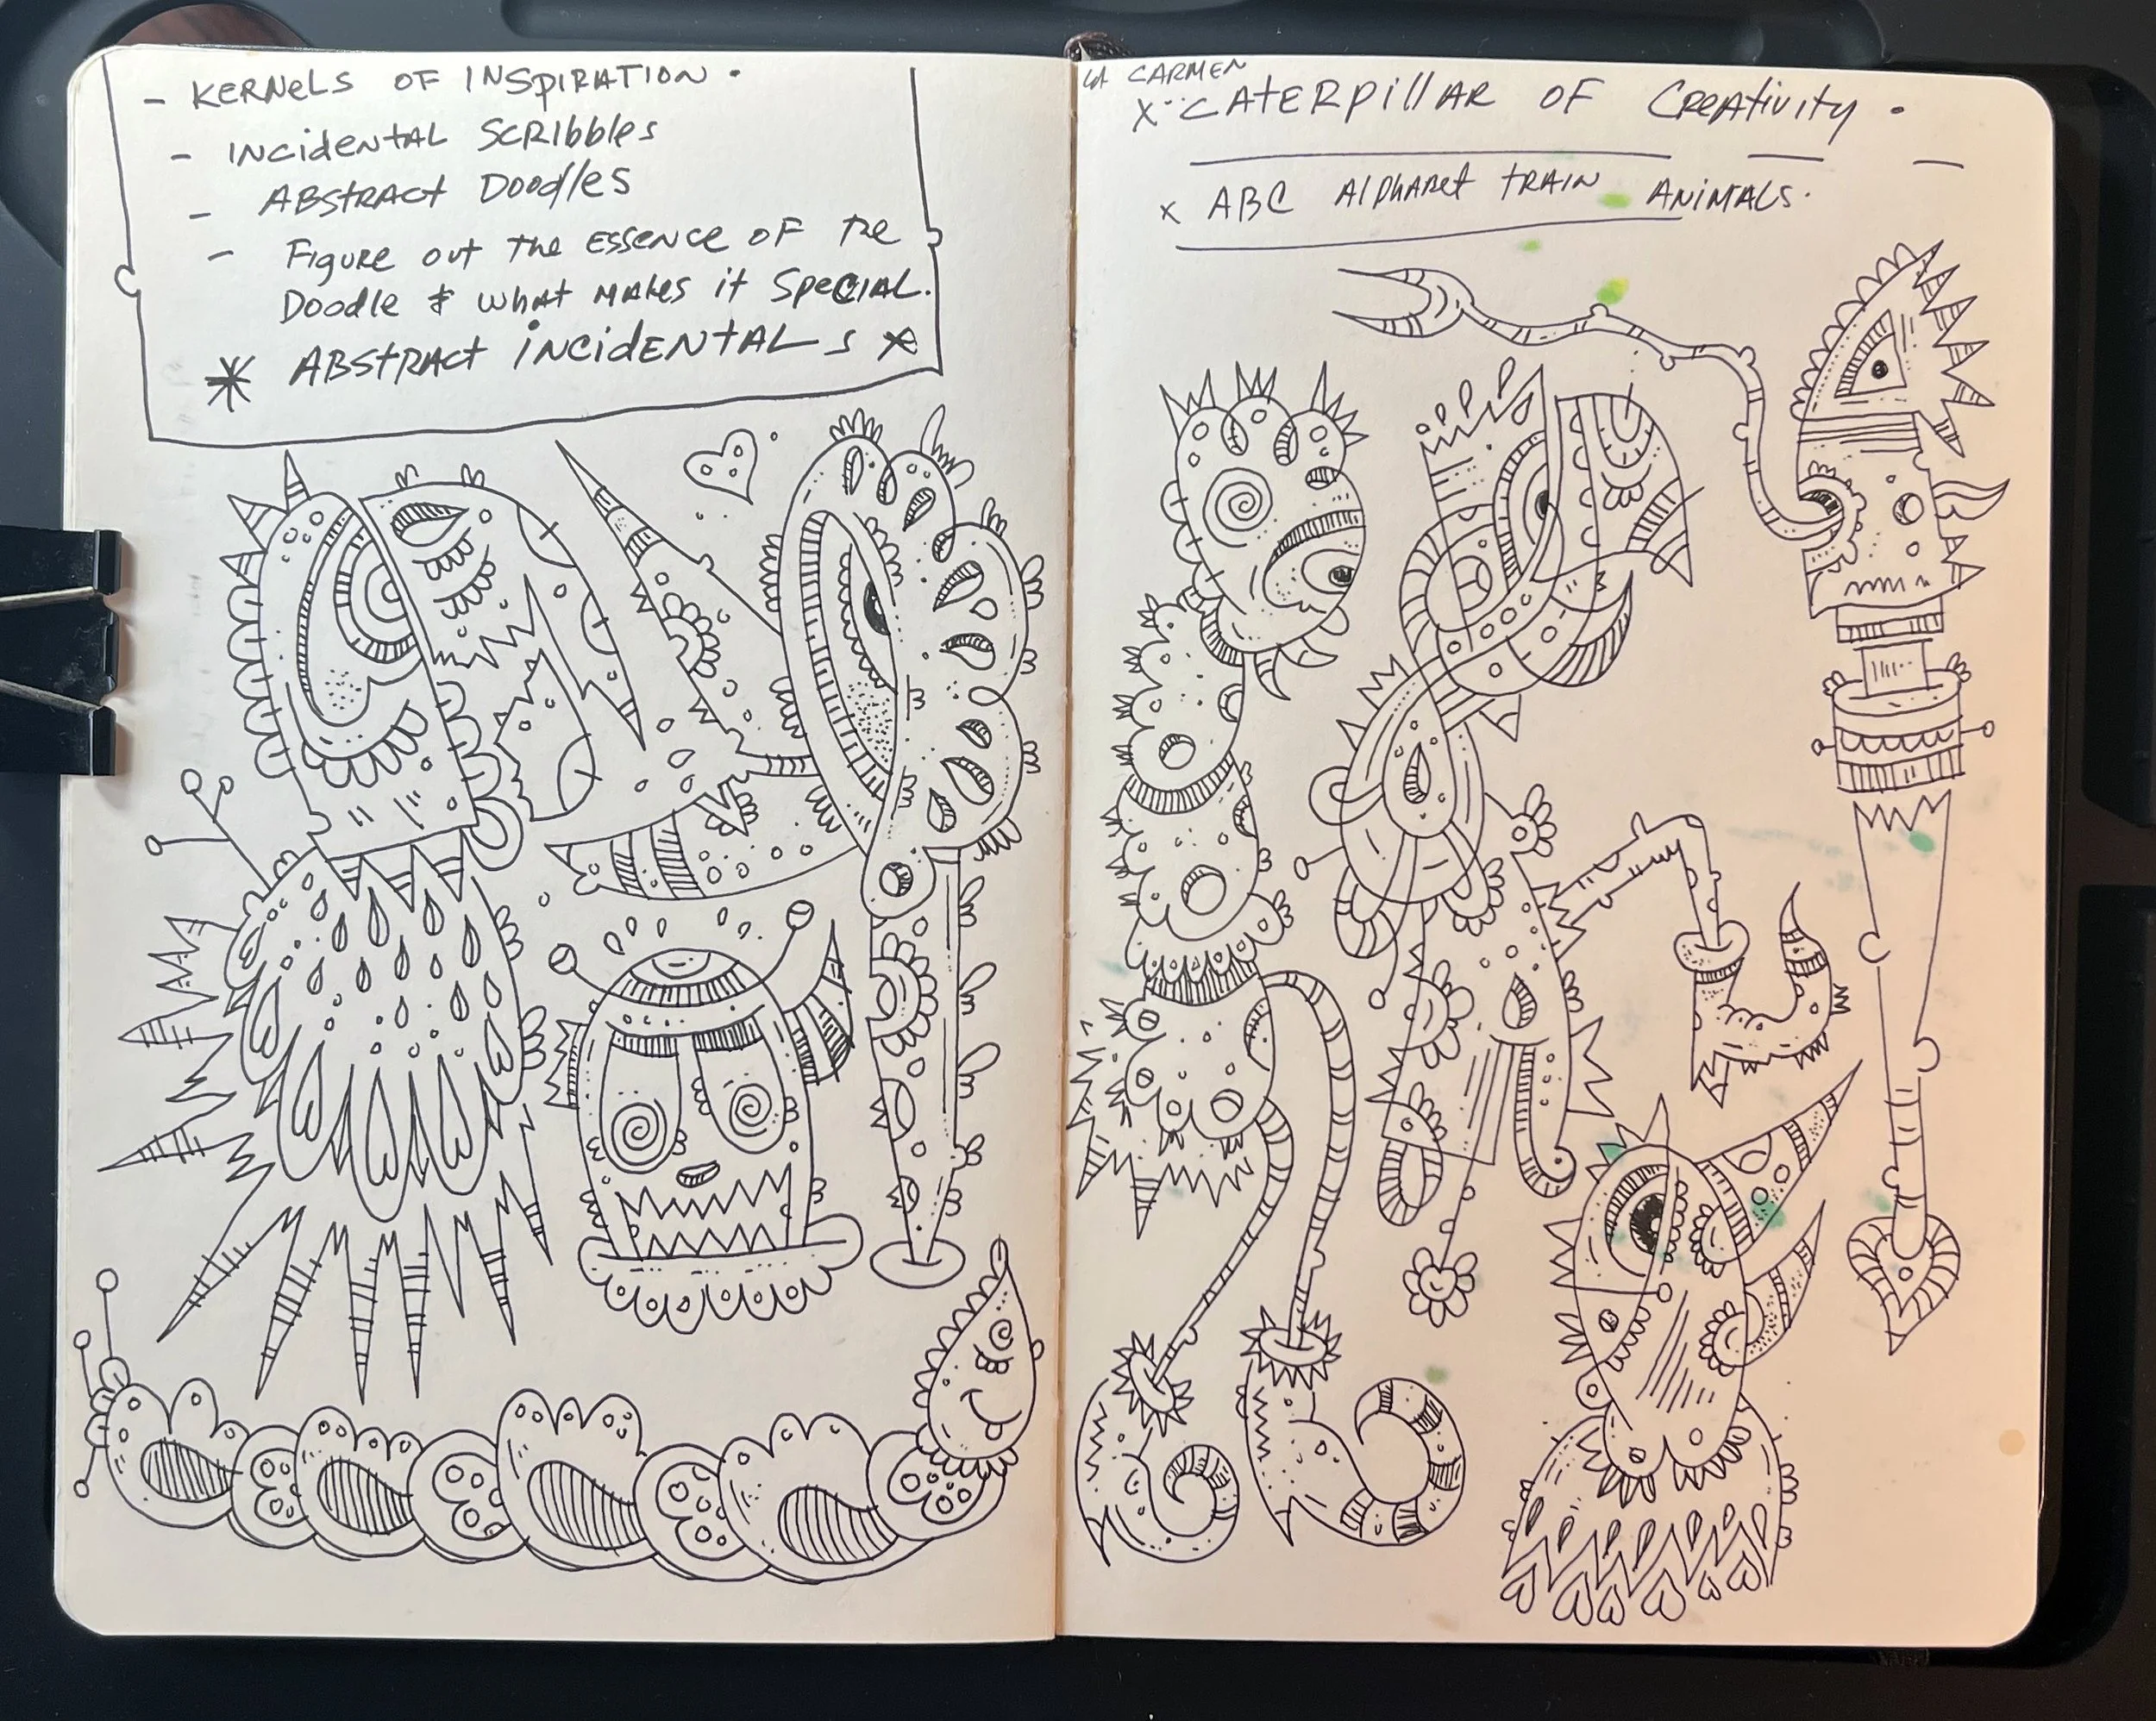 - KERNELS OF INSPIRATION.
- INCIDENTAL SCRIBBLES
- ABSTRACT DOODLES
- FIGURE OUT THE ESSENCE OF THE
DOODLE & WHAT MAKES IT SPECIAL.
* ABSTRACT INCIDENTALS *
CARMEN
X CATERPILLAR OF CREATIVITY.
X ABC ALPHABET TRAIN ANIMALS.